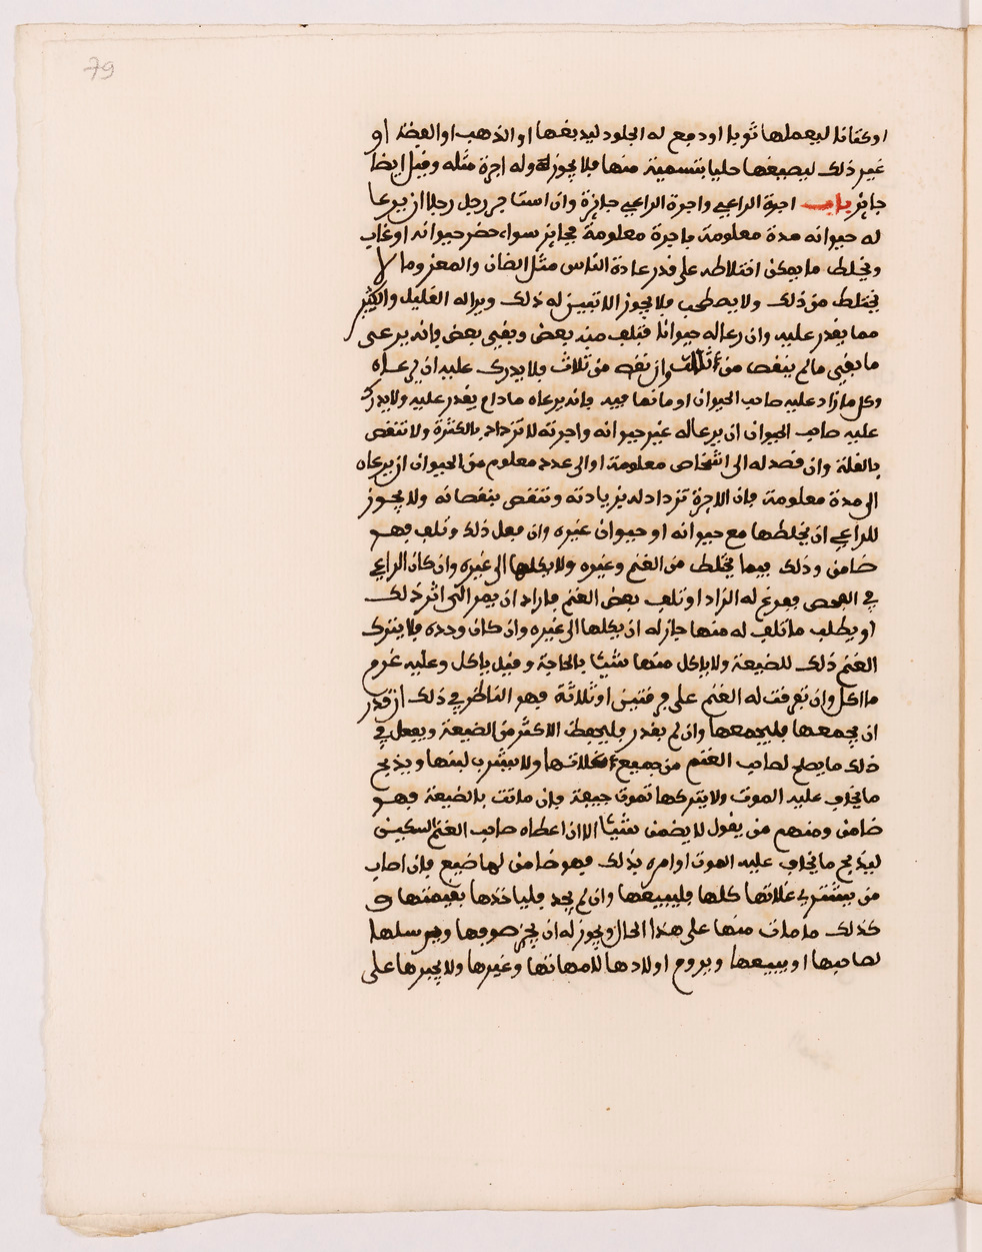 79
او كتانا ليعملها ثوبا او دفع له الجلود ليدبغها او الذهب او الفضة او
غير ذلك ليصيغها حليا بتسمية منها فلا يجوز له وله اجرة مثله وقيل ايضا
جايز باب اجرة الراعي واجرة الراعي جايزة وان استاجر رجل رجلا ان يرعا
له حيوانه مدة معلومة باجرة معلومة فجايز سواء حضر حيوانه او غاب
ويخلط ما يمكن اختلاطه على قدر عادة الناس مثل الضان والمعز وما لا
يختلط من ذلك ولا يصطحب فلا يجوز الا تعيين له ذلك ويرا له القليل والكثير
مما يقدر عليه وان رعا له حيوانا فتلف منه بعض وبقي بعض فانه يرعى
ما بقي ما لم ينقص من ثلاث وان نقص من ثلاث فلا يدرك عليه ان يرعاه
وكل ما زاد عليه صاحب الحيوان او ما نما فيه فانه يرعاه ما دام يقدر عليه ولا يدرك
عليه صاحب الحيوان ان يرعا له غير حيوانه واجرته لا تزداد بالكثرة ولا تنقص
بالقلة وان قصد له الى اشخاص معلومة او الى عدد معلوم من الحيوان ان يرعاه
الى مدة معلومة فان الاجرة تزداد له بزيادته وتنقص بنقصانه ولا يجوز
للراعي ان يخلطها مع حيوانه او حيوان غيره وان فعل ذلك وتلف فهو
ضامن وذلك فيما يختلط من الغنم وغيره ولا يكلها الى غيره وان كان الراعي
في الفحص ففرغ له الزاد او تلف بعض الغنم فاراد ان يمر الى اثر ذلك
او يطلب ما تلف له منها جاز له ان يكلها الى غيره وان كان وحده فلا يترك
الغنم ذلك للضيعة ولا ياكل منها شيئا بالحاجة وقيل ياكل وعليه غرم
ما اكل وان تفرقت له الغنم على فرقتين او ثلاثة فهو الناظر في ذلك ان قدر
ان يجمعها فليجمعها وان لم يقدر فليحفظ الاكثر من الضيعة ويفعل في
ذلك ما يصلح لصاحب الغنم من جميع غلاتها ولا يشرب لبنها ويذبح
ما يخاف عليه الموت ولا يتركها تموت جيفة فان ماتت بالضيعة فهو
ضامن ومنهم من يقول لا يضمن شيئا الا ان اعطاه صاحب الغنم السكين
ليذبح ما يخاف عليه الموت او امره بذلك فهو ضامن لما ضيع فان اصاب
من يشتري غلاتها كلها فليبيعها وان لم يجد فلياخذها بقيمتها و
كذلك ما مات منها على هذا الحال ويجوز له ان يجز صوفها ويرسلها
لصاحبها او يبيعها ويروم اولادها لامهاتها وغيرها ولا يجبرها على